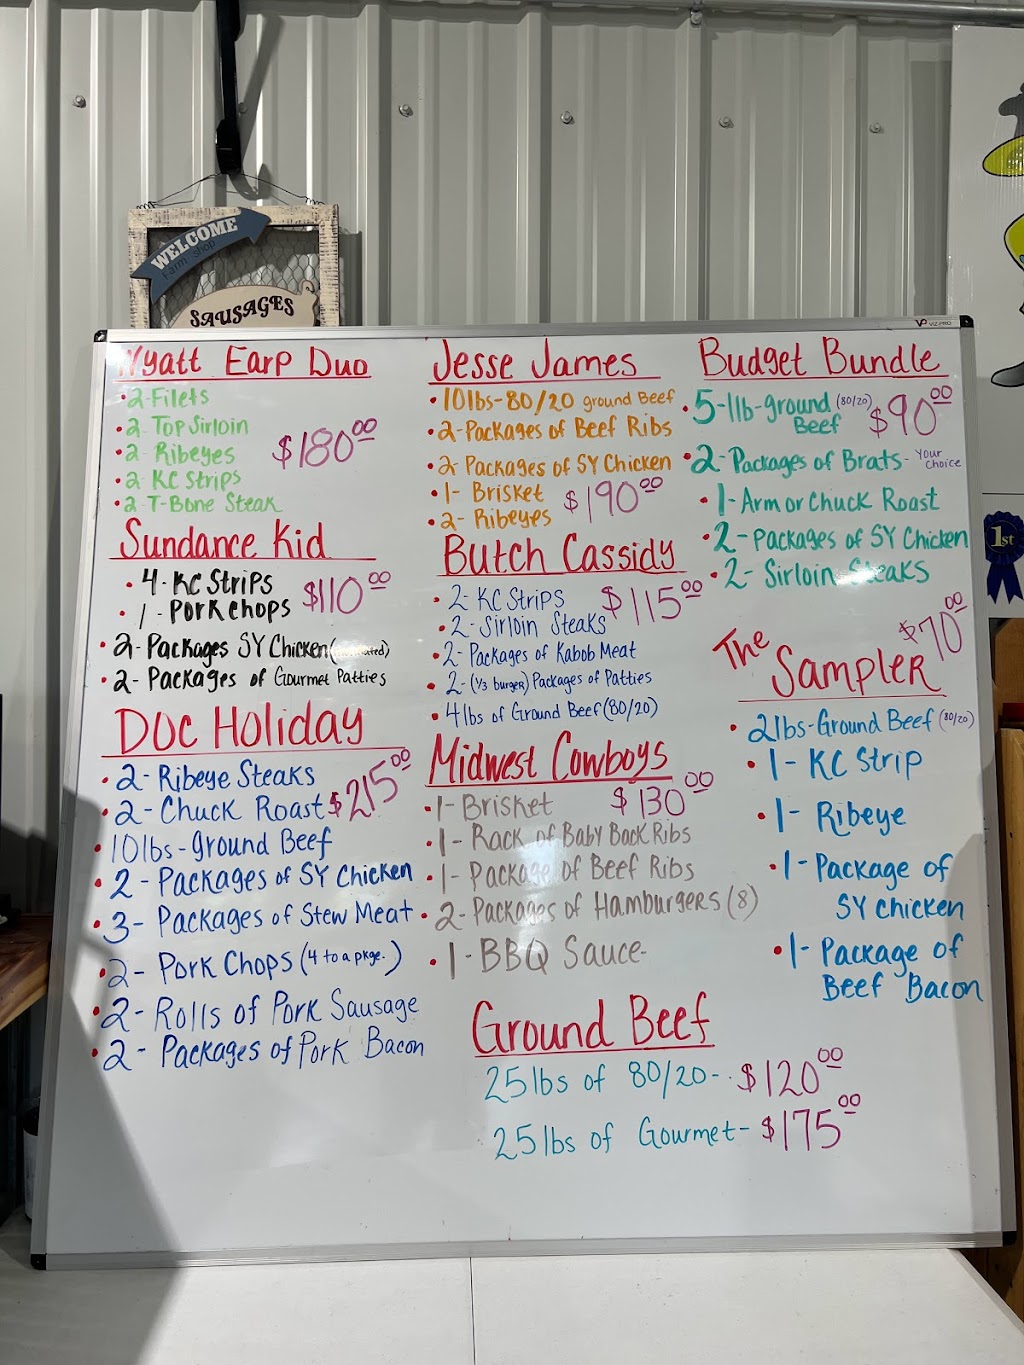 WELCOME
Farm shop
SAUSAGES
VIZ-PRO
1st
Wyatt Earp Duo
• 2-Filets
• 2-Top Sirloin
• 2-Ribeyes
• 2-KC Strips
• 2-T-Bone Steak
$180.00
Sundance Kid
• 4-KC Strips
• 1-Pork Chops
$110.00
• 2-Packages SY Chicken
• 2-Packages of Gourmet Patties
Doc Holiday
• 2-Ribeye Steaks
$215.00
• 2-Chuck Roast
• 10lbs-ground Beef
• 2-Packages of SY Chicken
• 3-Packages of Stew Meat
• 2-Pork Chops (4 to a pkge.)
• 2-Rolls of Pork Sausage
• 2-Packages of Pork Bacon
Jesse James
• 10lbs-80/20 ground Beef
• 2-Packages of Beef Ribs
• 2-Packages of SY Chicken
• 1-Brisket
• 2-Ribeyes
$190.00
Butch Cassidy
• 2-KC Strips
• 2-Sirloin Steaks
$115.00
• 2-Packages of Kabob Meat
• 2-(1/3 burger) Packages of Patties
• 4lbs of Ground Beef (80/20)
Midwest Cowboys
• 1-Brisket
$130.00
• 1-Rack of Baby Back Ribs
• 1-Package of Beef Ribs
• 2-Packages of Hamburgers (8)
• 1-BBQ Sauce-
Ground Beef
25lbs of 80/20-- $120.00
25lbs of Gourmet- $175.00
Budget Bundle
• 5-1lb-ground (80/20)
Beef
$90.00
• 2-Packages of Brats- Your Choice
• 1-Arm or Chuck Roast
• 2-Packages of SY Chicken
• 2-Sirloin Steaks
The Sampler
$70.00
• 2lbs-Ground Beef (80/20)
• 1-KC Strip
• 1-Ribeye
• 1-Package of
SY Chicken
• 1-Package of
Beef Bacon